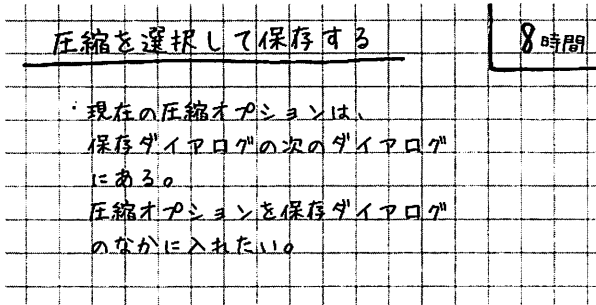 圧縮を選択して保存する
8時間
・現在の圧縮オプションは、
保存ダイアログの次のダイアログ
にある。
圧縮オプションを保存ダイアログ
のなかに入れたい。